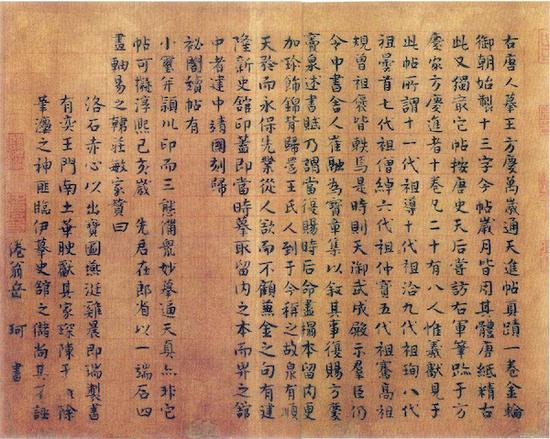 右唐人摹王方慶萬歲通天進帖真蹟一卷金輪
御朝始製十三字今帖歲月皆用其體唐紙精古
此又獨它帖按唐史天后嘗訪右軍筆蹟于方
慶家方慶進者十卷凡二十有八人惟羲獻見于
此帖所謂十一代祖導十代祖洽九代祖珣八代
祖曇首七代祖僧綽六代祖仲寶五代祖騫高祖
規曾祖褒皆軼焉是時則天御武成殿示羣臣仍
令中書舍人崔融為寶章集以叙其事復賜方慶
竇泉述書賦乃謂當復賜時后命盡搨本留內更
加珍飾錦背歸還王氏人到于今稱之故泉有順
天矜而永保先業從人欲而不顧兼金之句有建
隆新史館印蓋即當時摹取留內之本而畀之館
中者建中靖國刻歸
祕閣續帖有
小璽并潁川印而三態備眾妙摹逼天真亦非它
帖可擬淳熙己亥歲 先君在郎省以一端石四
畫軸易之韓莊敏家贊曰
洛石赤心以出寶圖燕逆雞晨即端製書
有奕王門南土華腴獻其家琛陳于除
筆之神匪臨伊摹史館之儲尚其可誣
倦翁岳珂書